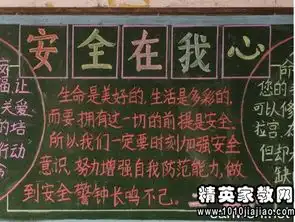 安全在我心
生命是美好的,生活是多彩的,
而要拥有这一切的前提是安全.
所以我们一定要时刻加强安全
意识,努力增强自我防范能力,做
到安全警钟长鸣不已.
让
关爱
的培
行动
您的
可以修
但却
精英家教网
www.1010jiajiao.com